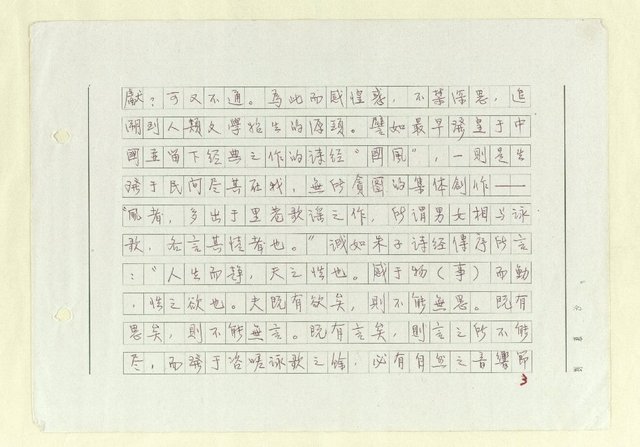 獻？可又不通。為此而感惶惑，不禁深思，追
溯到人類文學發生的源頭。譬如最早發皇于中
國並留下經典之作的詩经“國風”，一則是生
發于民间尽其在我，無所貪圖的集体創作——
“風者，多出于里巷歌谣之作，所谓男女相与詠
歌，各言其情者也。”诚如朱子詩经傳序所言
：“人生而静，天之性也。感于物（事）而動
，性之欲也。夫既有欲矣，則不能無思。既有
思矣，則不能無言。既有言矣，則言之所不能
尽，而發于咨嗟詠歌之餘，必有自然之音響節
3